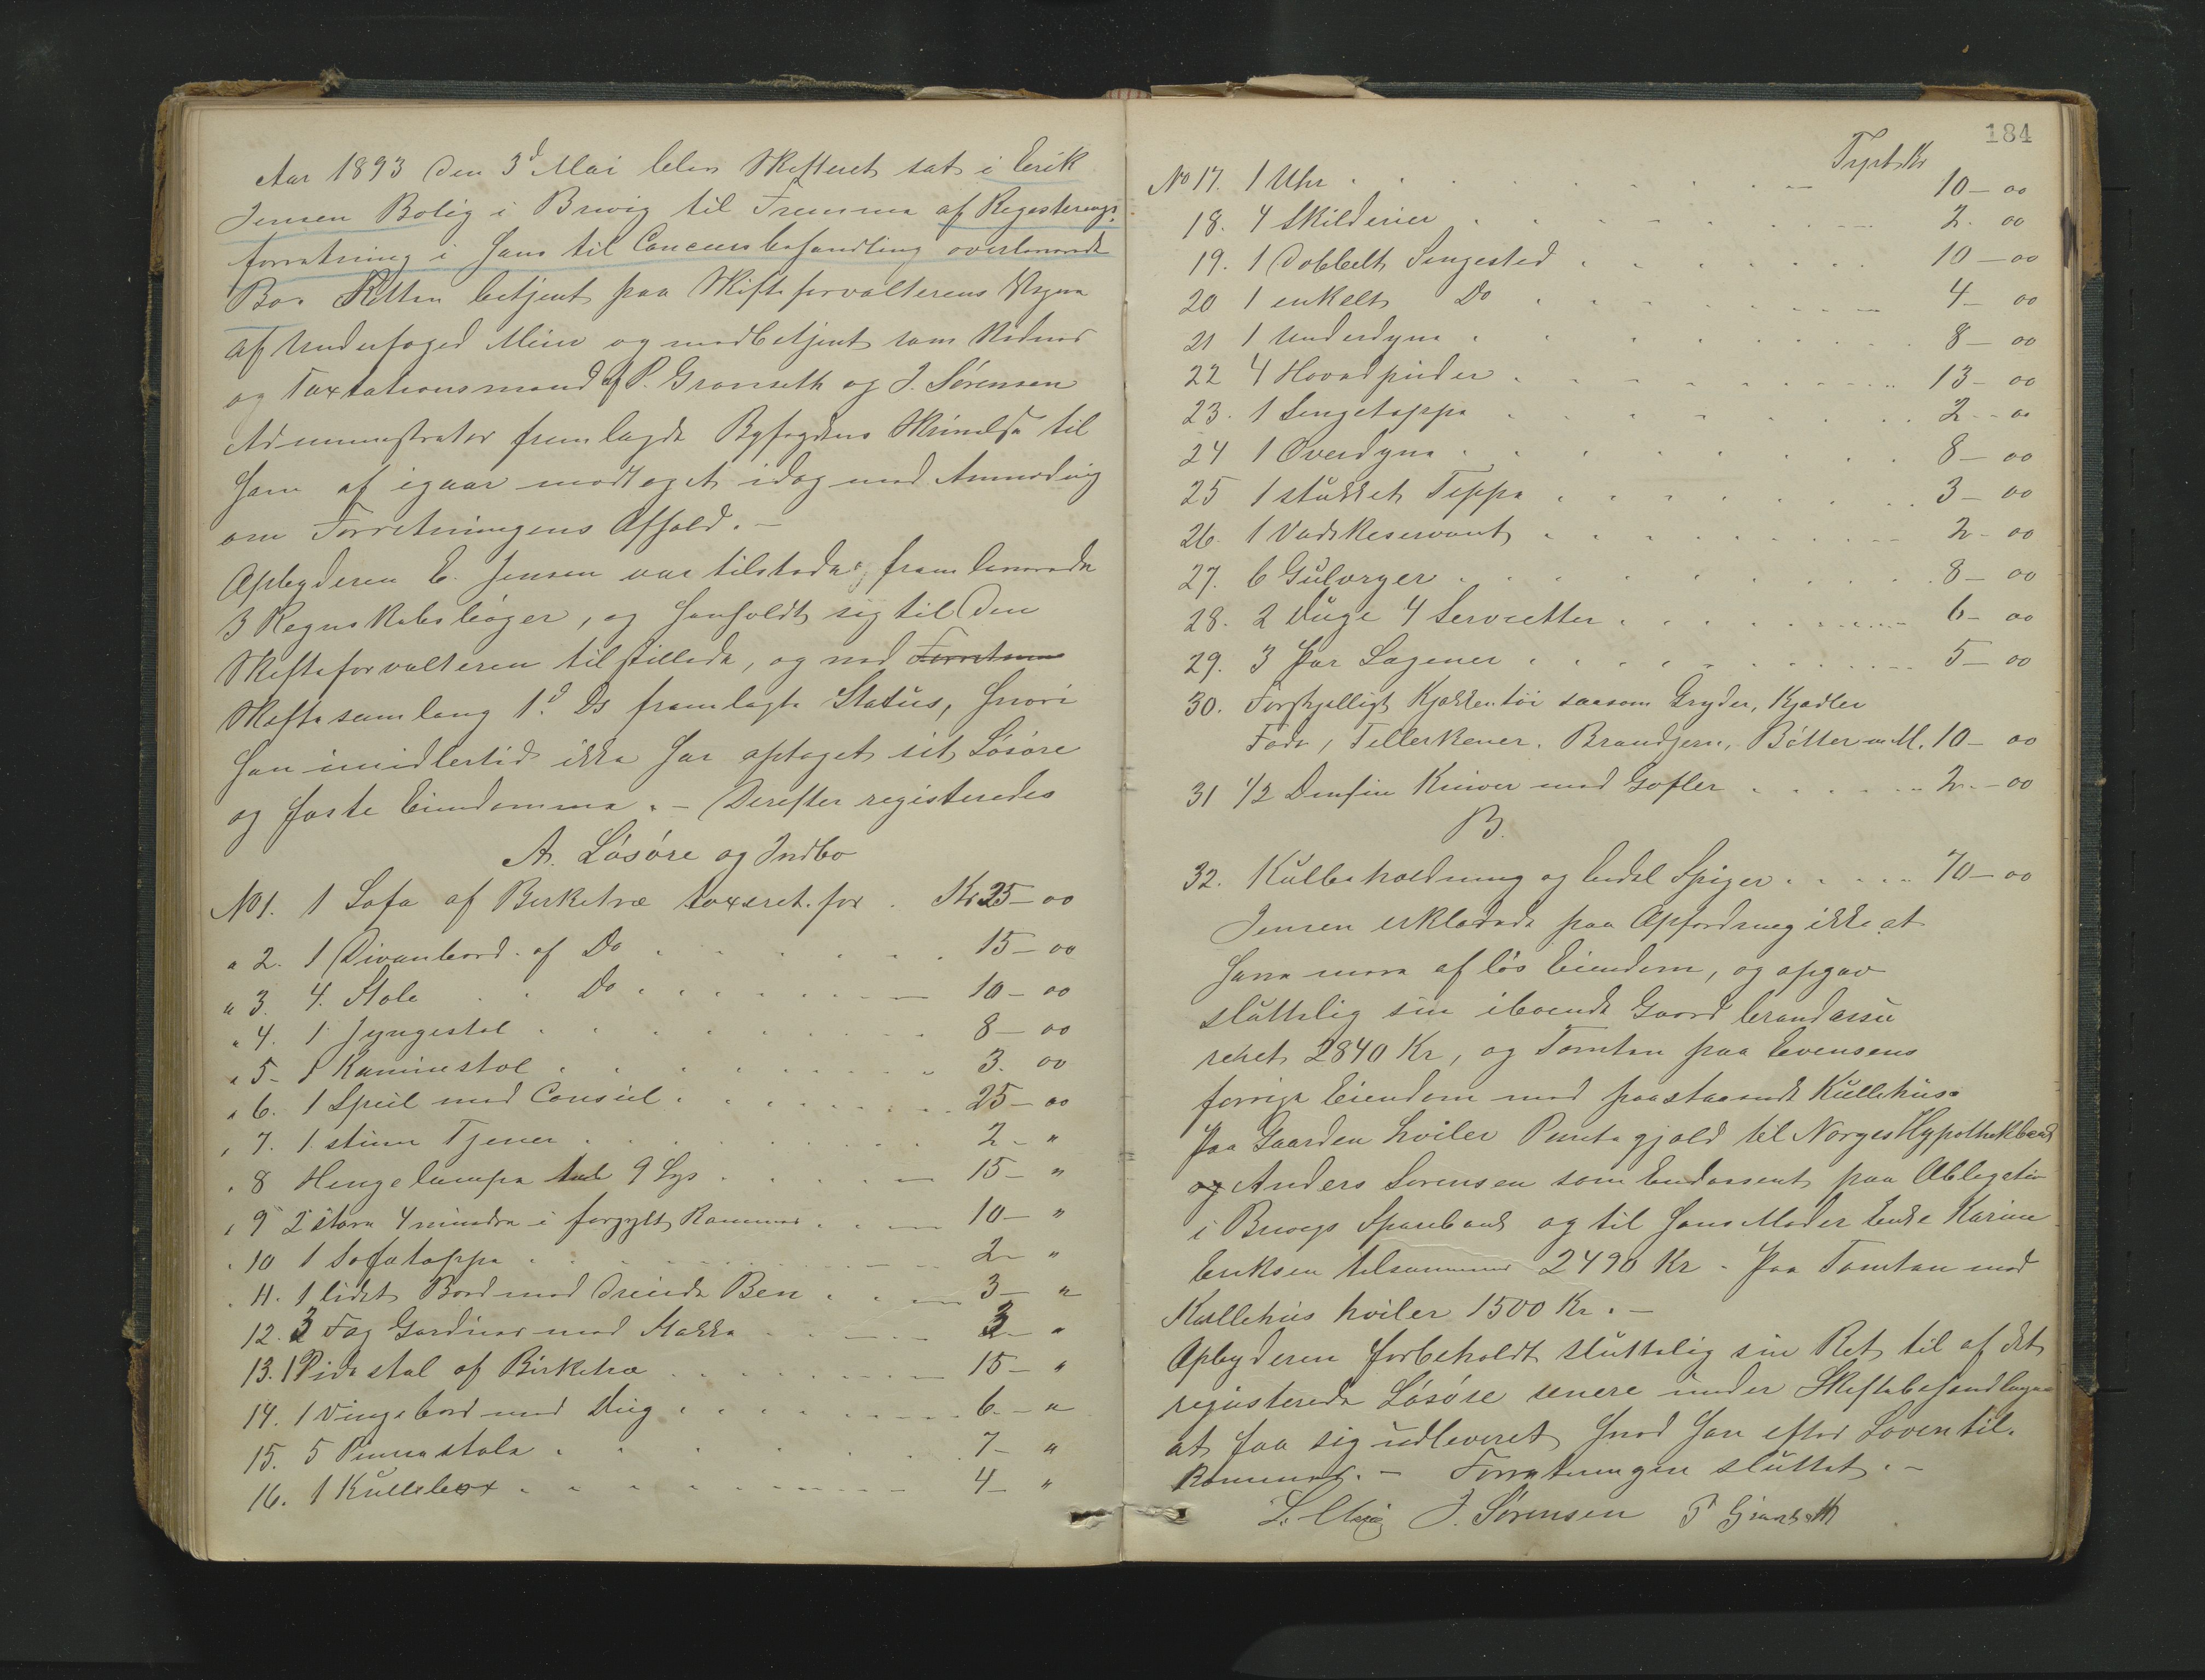 Aar 1893 den 3d Mai blev Skifteret sat i Erik
Jensen Bolig i Brevig til Fremme af Registerings-
forretning i hans til Concursbehandling overleverede
Bo. Retten betjent paa Skifteforvalterens Vegne
af Underfoged Meier og medbetjent som Vidner
og Taxtationsmænd af P. Granseth og J. Sørensen
Administrator fremlagde Byfogdens Skrivelse til
ham af igaar modtaget idag med Anmodning
om Forretningens Afhold. –
Opbyderen E. Jensen var tilstede, fremleverede
3 Regnskabsbøger, og henholdt sig til den
Skifteforvalteren tilstillede, og ved Forretnin
Skiftesamling 1d Ds fremlagte Status, hvori
han imidlertid ikke har optaget sit Løsøre
og faste Eiendomme. – Derefter registeredes
A. Løsøre og Indbo
No 1. 1 Sofa af Birketræ taxeret for . Kr 25 – 00
" 2. 1 Divanbord af Do 15 – 00
" 3. 4. Stole Do 10 – 00
" 4. 1 Gyngestol 8 – 00
" 5 – 1 Kaminestol 3. 00
" 6. 1 Speil med Consul 25 – 00
" 7. 1. stum Tjener 2 – "
" 8 Hengelampe 9 Lys 15 – "
" 9 2 store 4 mindre i forgylt Rammer 10 – "
" 10 1 Sofateppe 2 – "
" 11. 1 lidet Bord med dreiede Ben 3 – "
12. 3 Fag Gardiner med Stokke 3 – "
13. 1 Pidestal af Birketræ 15 – "
14. 1 Vingebord med Dug 6. – "
15. 5 Pinnestole 7 – "
16. 1 Kullebox 4 – "
184
Trpt. Kr
No 17. 1 Uhr 10 – 00
18. 4 Skilderier 2. 00
19. 1 dobbelt Sengested 10 – 00
20 1 enkelt Do 4 – 00
21 1 Underdyne 8 – 00
22 4 Hovedpuder 13 – 00
23. 1 Sengeteppe 2 – 00
24 1 Overdyne 8 – 00
25 1 stukket Teppe 3 – 00
26. 1 Vadskeservant 2 – 00
27. 6 Gulvryer 8 – 00
28. 2 Duge 4 Servietter 6 – 00
29. 3 Par Lagener 5 – 00
30. Forskjelligt Kjøkkentøi saasom Gryder, Kjedler
Fade, Tellerkener. Brandjern, Bøtter m. M. 10 – 00
31 1/2 Dusin Kniver med Gafler 2. – 00
B.
32. Kulbeholdning og endel Spiger 70 – 00
Jensen erklærede paa Opfordring ikke at
have mere af løs Eiendom, og opgav
sluttelig sin iboende Gaard brandassu
reret 2840 Kr, og Tomten paa Evensens
forrige Eiendom med paastaaende Kullehus.
Paa Gaarden hviler Pantegjæld til Norges Hypothekbank
og Anders Sorensen som Endossent paa Obligation
i Brevigs Sparebank og til hans Moder Enke Karine
Eriksen tilsammen 2490 Kr. Paa Tomten med
Kullehus hviler 1500 Kr. –
Opbyderen forbeholdt sluttelig sin Ret til af det
registerede Løsøre senere under Skiftebehandlingen
at faa sig udleveret hvad han efter Loven til-
kommer. – Forretningen sluttet. –
J. Sørensen P Granseth